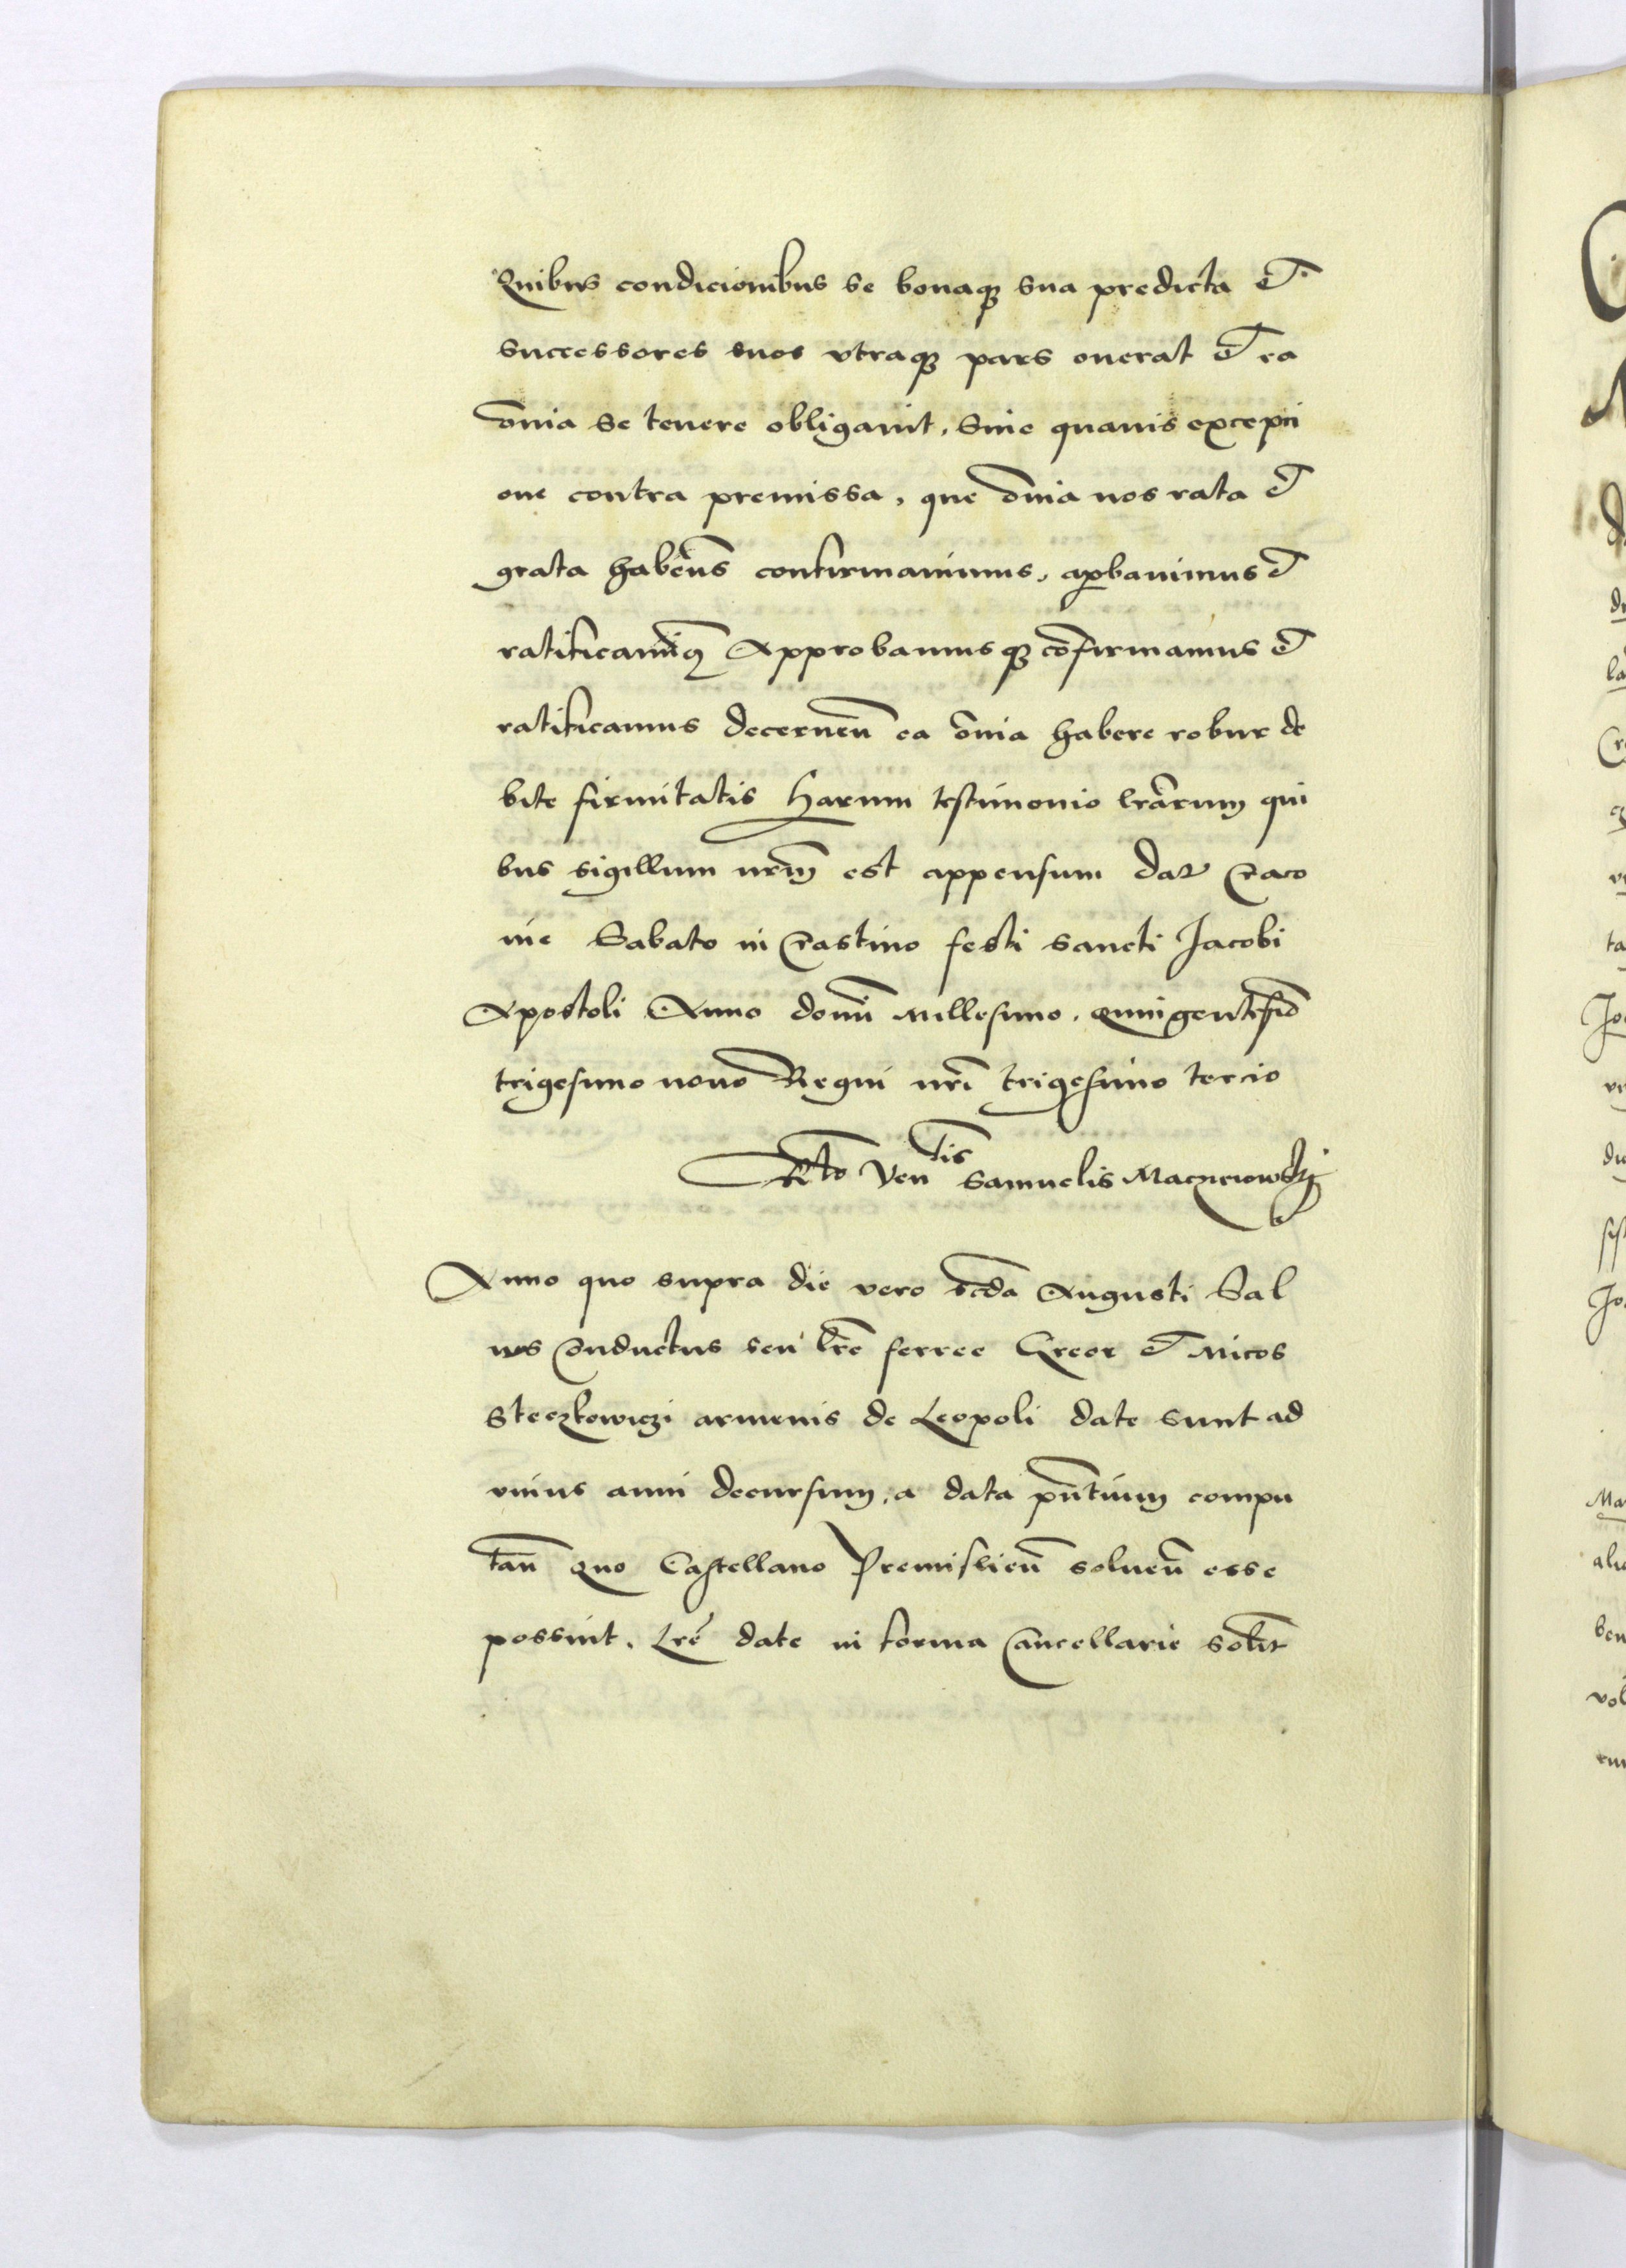 Quibus condicionibus se bonaqꝫ sua predicta et
successores suos vtraqꝫ pars onerat et ea
om̄ia se tenere obligauit, Sine quauis excepci
one contra premissa, que om̄ia nos rata et
grata haben̄s confirmauimus, aꝓbauimus et
ratificauimꝰ Approbamusqꝫ cōfirmamus et
ratificamus decernen̄ ea om̄ia habere robur de
bite firmitatis Harum testimonio lr̄arum qui
bus sigillum nr̄m est appensum dat Craco
uie Sabato in Crastino festi sancti Jacobi
Apostoli Anno domī Millesimo, quingentesīo
trigesimo nono Regni nr̄i trigesimo tercio
Rto Ven tis Samuelis Maczieiowskj
Anno quo supra die vero scd̄a Augusti Sal
uus Conductus seu lr̄e ferree Greor et Micos
Steczkowiczi armenis de Leopoli date sunt ad
vnius anni decursum, a data pn̄tium compu
tan̄ quo Castellano Premislien̄ soluen̄ esse
possint, Lr̄e date in forma Cancellarie solit